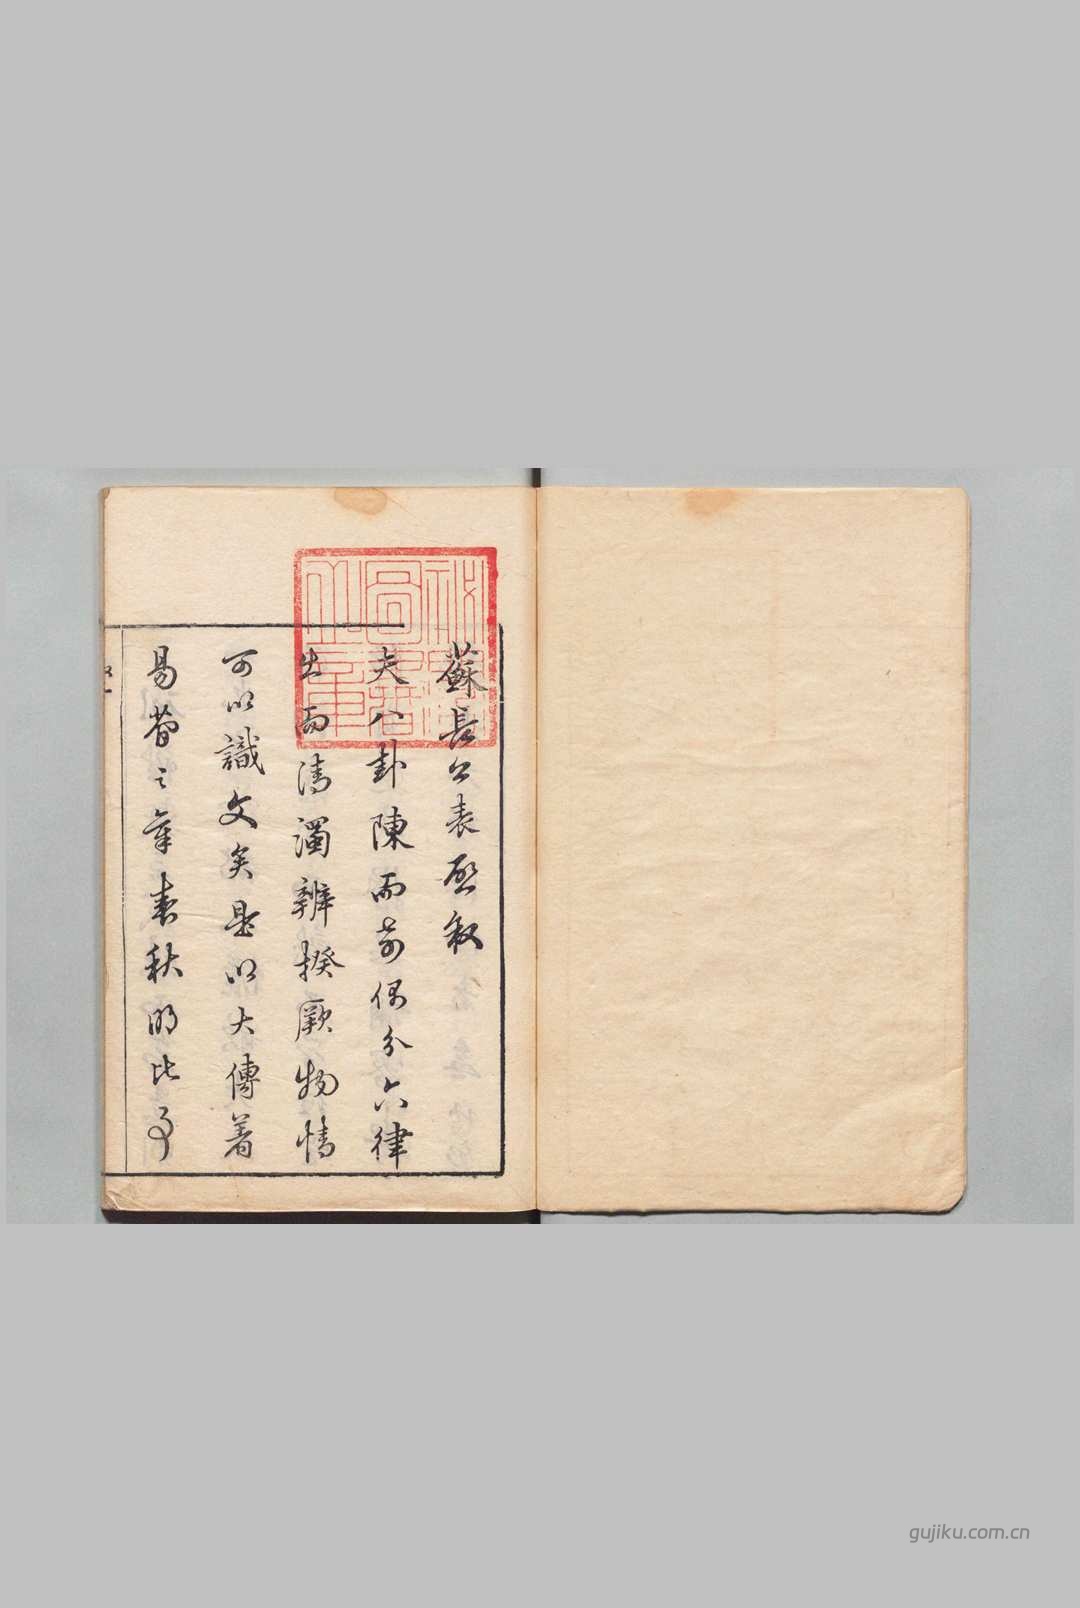 蘇長公表啓敘
夫八卦陳而奇偶分六律
出而清濁辨揆厥物情
可以識文矣是以大傳著
易簡之章春秋明比事
gujiku.com.cn